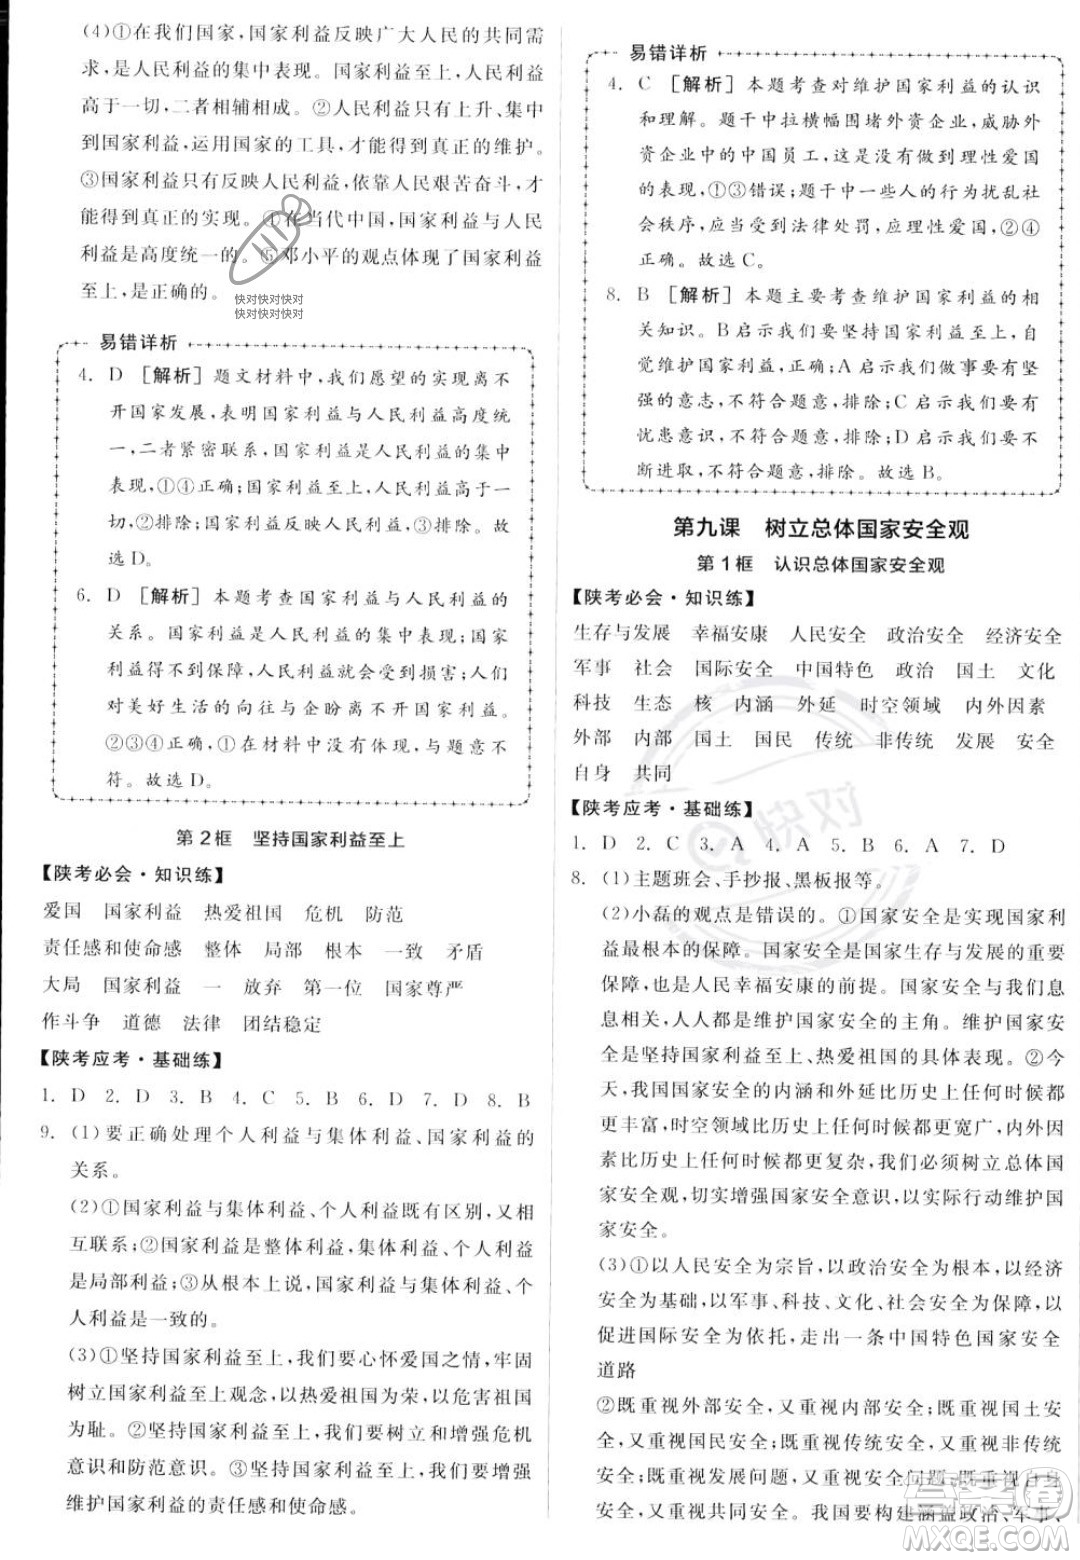 (4)①在我们国家,国家利益反映广大人民的共同需
求,是人民利益的集中表现。国家利益至上,人民利益
高于一切,二者相辅相成。②人民利益只有上升、集中
到国家利益,运用国家的工具,才能得到真正的维护。
③国家利益只有反映人民利益,依靠人民艰苦奋斗,才
能得到真正的实现。④在当代中国,国家利益与人民
利益是高度统一的。⑤邓小平的观点体现了国家利益
至上,是正确的。
快对快对快对
快对快对快对
易错详析
4. D [解析] 题文材料中,我们愿望的实现离不
开国家发展,表明国家利益与人民利益高度统
一,二者紧密联系,国家利益是人民利益的集中
表现,①④正确;国家利益至上,人民利益高于一
切,②排除;国家利益反映人民利益,③排除。故
选 D。
6. D [解析] 本题考查国家利益与人民利益的
关系。国家利益是人民利益的集中表现,国家利
益得不到保障,人民利益就会受到损害;人民们
对美好生活的向往与企盼离不开国家利益。
②③④正确,①在材料中没有体现,与题意不
符。故选 D。
第 2 框 坚持国家利益至上
【陕考必会·知识练】
爱国 国家利益 热爱祖国 危机 防范
责任感和使命感 整体 局部 根本 一致 矛盾
大局 国家利益 一 放弃 第一位 国家尊严
作斗争 道德 法律 团结稳定
【陕考应考·基础练】
1. D 2. D 3. B 4. C 5. B 6. D 7. D 8. B
9. (1)要正确处理个人利益与集体利益、国家利益的
关系。
(2)①国家利益与集体利益、个人利益既有区别,又相
互联系;②国家利益是整体利益,集体利益、个人利益
是局部利益;③从根本上说,国家利益与集体利益、个
人利益是一致的。
(3)①坚持国家利益至上,我们要心怀爱国之情,牢固
树立国家利益至上观念,以热爱祖国为荣,以危害祖国
为耻。②坚持国家利益至上,我们要树立和增强危机
意识和防范意识。③坚持国家利益至上,我们要增强
维护国家利益的责任感和使命感。
易错详析
4. C [解析] 本题考查对维护国家利益的认识
和理解。题干中拉横幅围堵外资企业,威胁外
资企业中的中国员工,这是没有做到理性爱国
的表现,①③错误;题干中一些人的行为扰乱社
会秩序,应当受到法律处罚,应理性爱国,②④
正确。故选 C。
8. B [解析] 本题主要考查维护国家利益的相
关知识。B 启示我们要坚持国家利益至上,自
觉维护国家利益,正确;A 启示我们要有坚
强的意志,不符合题意,排除;C 启示我们要有
忧患意识,不符合题意,排除;D 启示我们要不
断进取,不符合题意,排除。故选 B。
第九课 树立总体国家安全观
第 1 框 认识总体国家安全观
【陕考必会·知识练】
生存与发展 幸福安康 人民安全 政治安全 经济安全
军事 社会 国际安全 中国特色 政治 国土 文化
科技 生态 核 内涵 外延 时空领域 内外因素
外部 内部 国土 国民 传统 非传统 发展 安全
自身 共同
【陕考应考·基础练】
1. D 2. C 3. A 4. A 5. B 6. A 7. D
8. (1)主题班会、手抄报、黑板报等。
(2)小磊的观点是错误的。①国家安全是实现国家利
益最根本的保障。国家安全是国家生存与发展的重要
保障,也是人民幸福安康的前提。国家安全与我们息
息相关,人人都是维护国家安全的主角。维护国家安
全是坚持国家利益至上、热爱祖国的具体表现。②今
天,我国国家安全的内涵和外延比历史上任何时候都
要丰富,时空领域比历史上任何时候都更宽广,内外因
素比历史上任何时候都更复杂,我们必须树立总体国
家安全观,切实增强国家安全意识,以实际行动维护国
家安全。
(3)①以人民安全为宗旨,以政治安全为根本,以经济
安全为基础,以军事、科技、文化、社会安全为保障,以
促进国际安全为依托,走出一条中国特色国家安全
道路
②既重视外部安全,又重视内部安全;既重视国土安
全,又重视国民安全;既重视传统安全,又重视非传统
安全;既重视发展问题,又重视安全问题;既重视自身
安全,又重视共同安全。我国要构建涵盖政治、军事、
快对
MXQE.COM